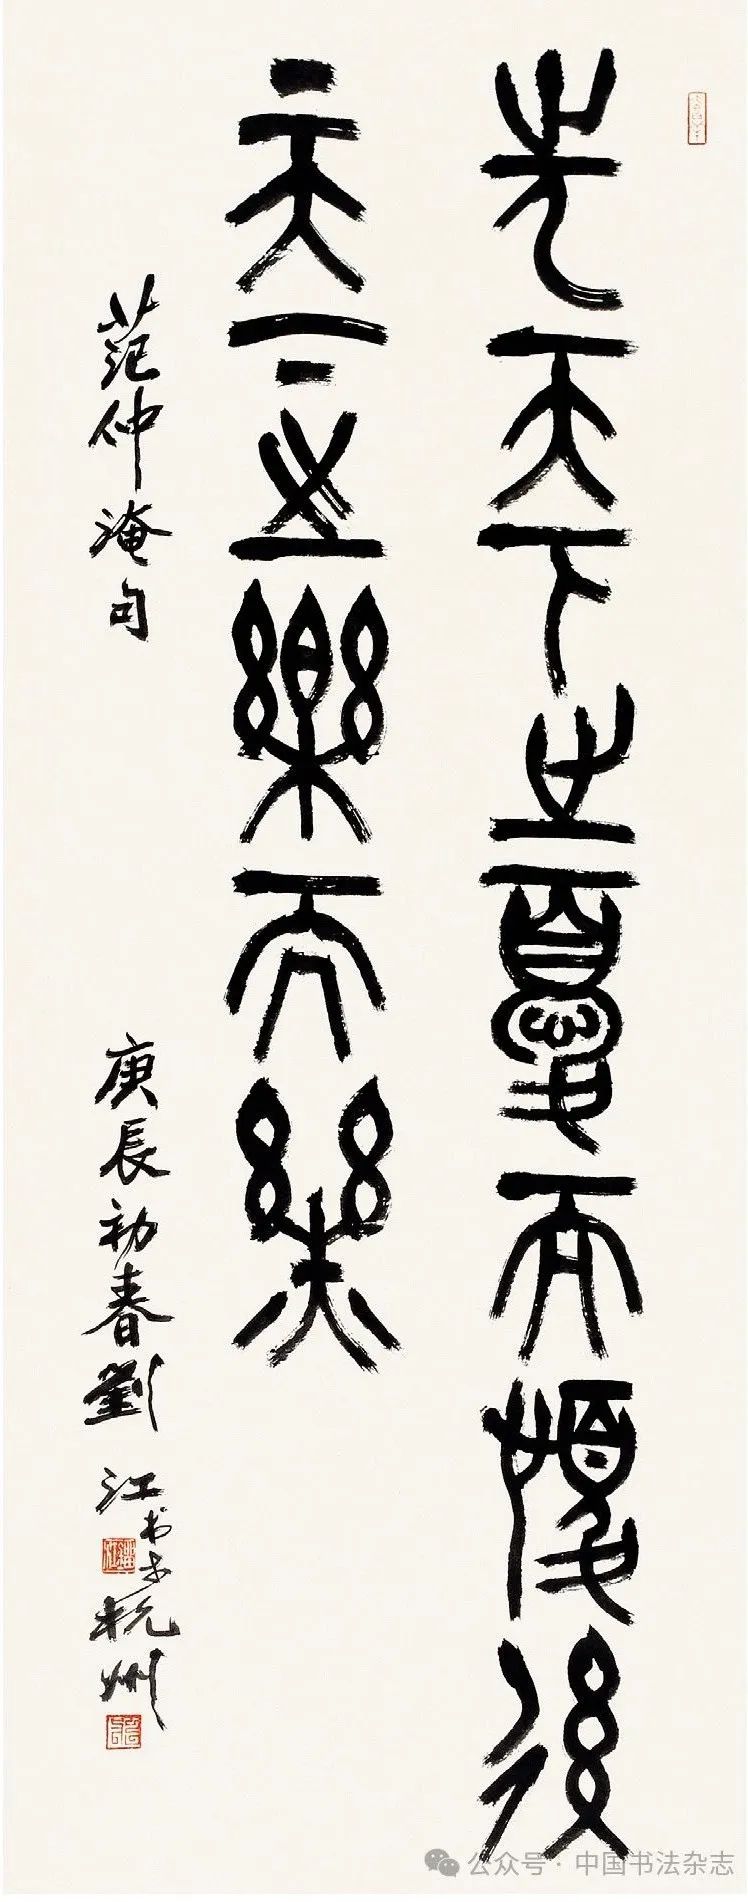 先天下之憂而憂後
天下之樂而樂
范仲淹句 庚辰初春劉江书於杭州
公众号 · 中国书法杂志